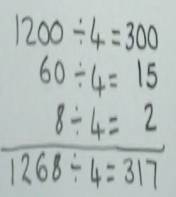 1200 ÷ 4 = 300
60 ÷ 4 = 15
8 ÷ 4 = 2
1268 ÷ 4 = 317